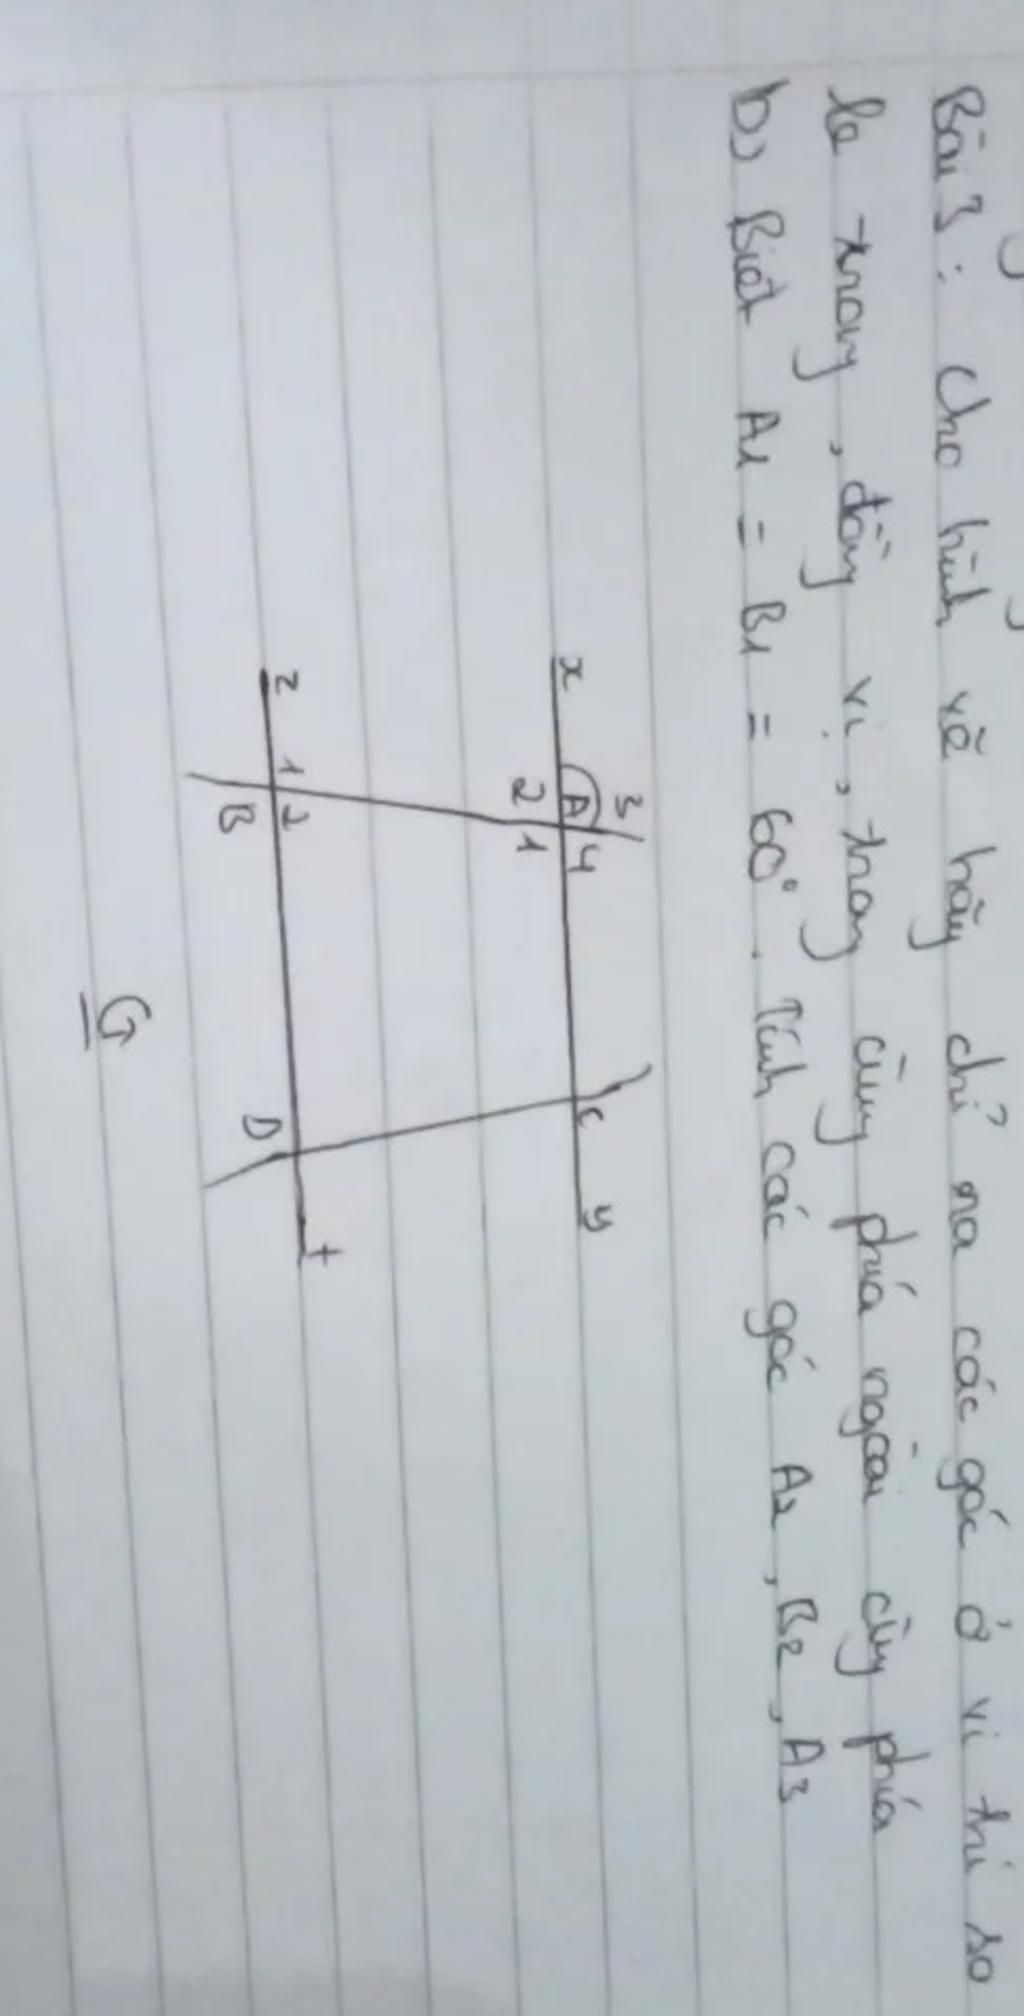 Bài 3: Cho hình vẽ hãy chỉ ra các góc ở vi trí so
le trong, đồng vị, trong cùng phía ngoài cùng phía
b) Biết A1 = B1 = 60°. Tính các góc A2, B2, A3
x A 3 4 C y
2 1
z 1 2 D t
B
G